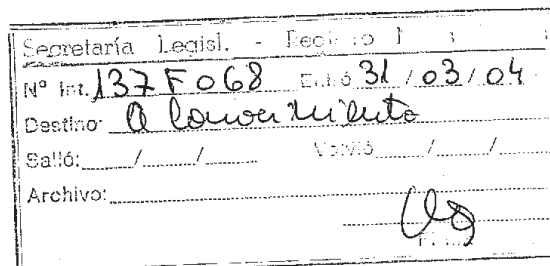 Secretaría Legisl. -
Nº Int. 137 F 068 Entró 31 / 03 / 04
Destino: A Conocimiento
Salió: / / Volvió / /
Archivo: